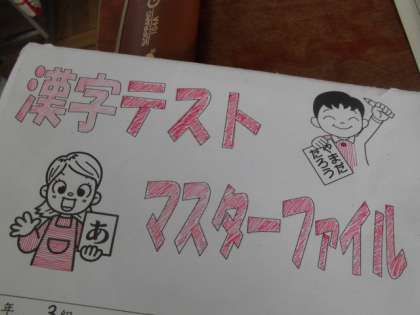 漢字テスト
やまだ
たろう
あ
マスターファイル
年 3組